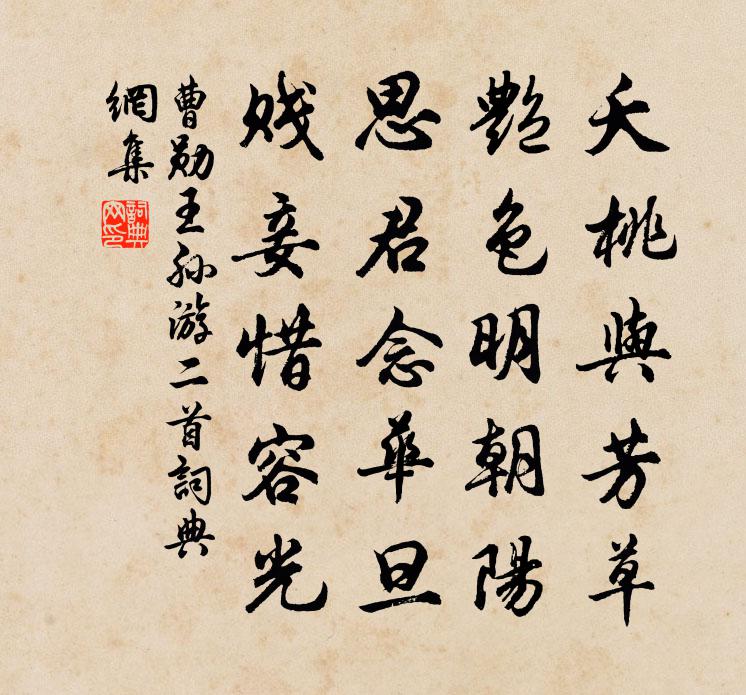 夭桃與芳草
艷色明朝陽
思君念華旦
賤妾惜容光
曹勛王孫游二首詞典
網集
詞典
网印